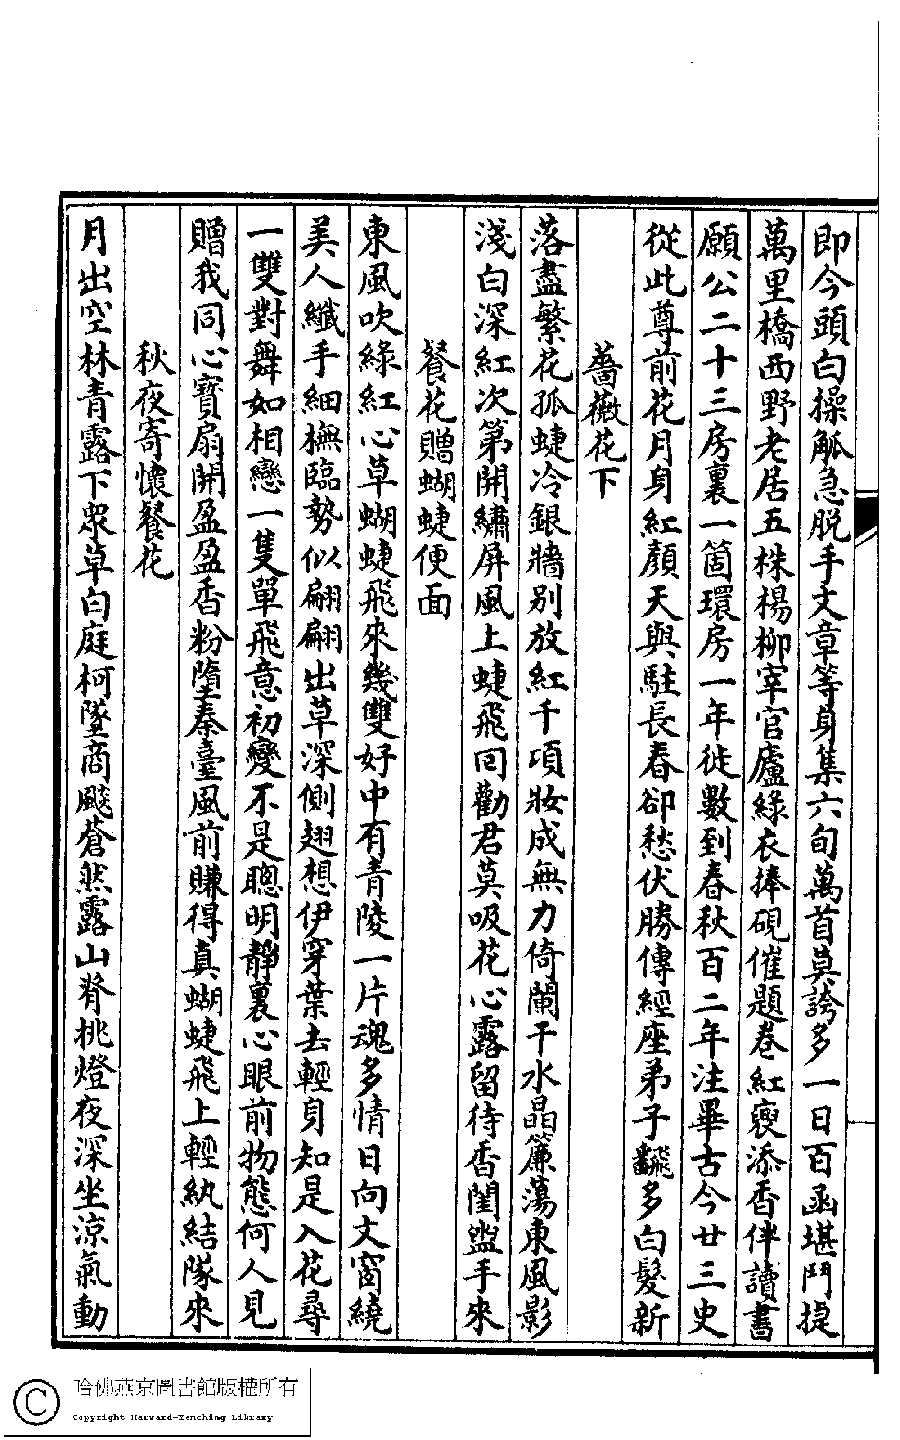 即今頭白操觚急脫手文章等身集六旬萬首莫誇多一日百函堪鬥捷
萬里橋西野老居五株楊柳宰官廬綠衣捧硯催題卷紅褎添香伴讀書
願公二十三房裏一箇環房一年徙數到春秋百二年注畢古今廿三史
從此尊前花月身紅顏天與駐長春卻愁伏勝傳經座弟子翻多白髮新
薔薇花下
落盡繁花孤蜨冷銀牆別放紅千項妝成無力倚闌干水晶簾蕩東風影
淺白深紅次第開繡屏風上蜨飛回勸君莫吸花心露留待香閨盥手來
餐花贈蝴蜨便面
東風吹綠紅心草蝴蜨飛來幾雙好中有青陵一片魂多情日向文窗繞
美人纖手細橅臨勢似翩翩出草深側翅想伊穿葉去輕身知是入花尋
一雙對舞如相戀一隻單飛意初變不是聰明靜裏心眼前物態何人見
贈我同心寶扇開盈盈香粉墮秦臺風前賺得真蝴蜨飛上輕紈結隊來
秋夜寄懷餐花
月出空林青露下眾草白庭柯墜商颷蒼然露山脊挑燈夜深坐涼氣動
哈佛燕京圖書館版權所有
Copyright Harvard-Yenching Library